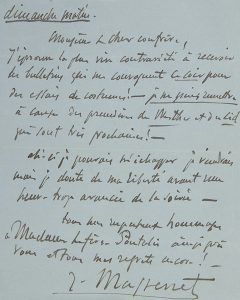 dimanche matin.
Monsieur & cher confrère !
J'éprouve la plus vive contrariété à recevoir
les bulletins qui me convoquent ce soir pour
des essais de costumes ! — je ne puis
à cause des premières de Werther et du Cid
qui sont très prochaines ! —
ah ! si je pouvais m'échapper je viendrais
mais je doute de ma liberté avant une
heure trop avancée de la soirée —
tous mes
à Madame ainsi qu'à
vous et tous mes regrets encore ! —
J. Massenet